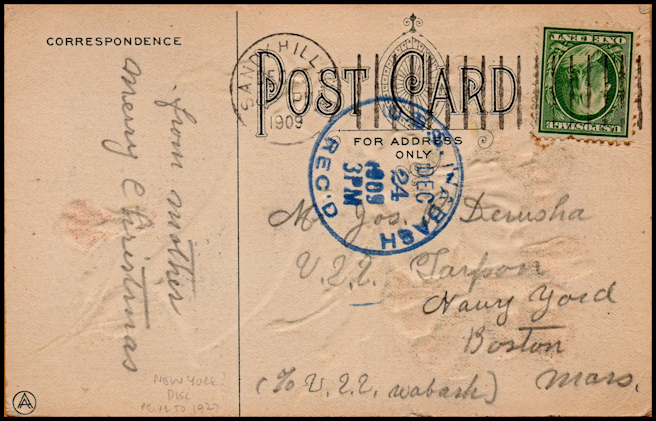 CORRESPONDENCE
POST CARD
FOR ADDRESS
ONLY
SANDY HILL
1909
U.S. POSTAGE
ONE CENT
U.S.S. WABASH
DEC
24
1909
3 PM
REC'D
Merry Christmas
from mother
M Jos. Derusha
U.S.S. Tarpon
Navy Yord
Boston
Mars.
(To U.S.S. wabash)
NEW YORK?
DISC
PRIOR TO 1927
A